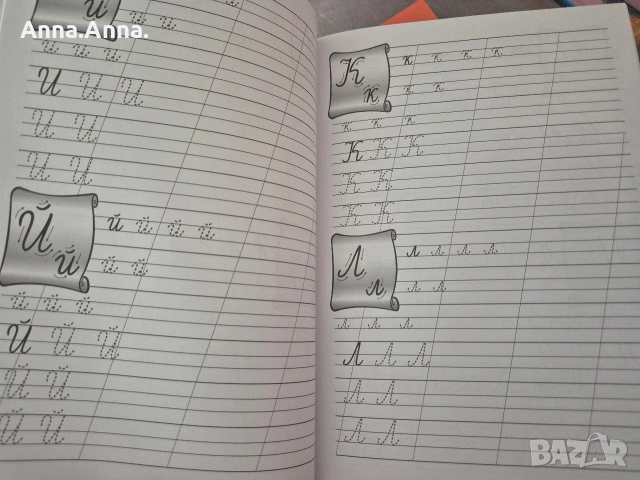 Anna.Anna.
и
и и
и и и
И И И
И И
И И
Й й
й й й й
й й
й й й
Й Й Й
Й Й
Й Й
К к
к к к к
к к
к к к
К К К
К К
К К
Л л
л л л л
л л
л л л
Л Л Л
Л Л
Л Л
BAZAR